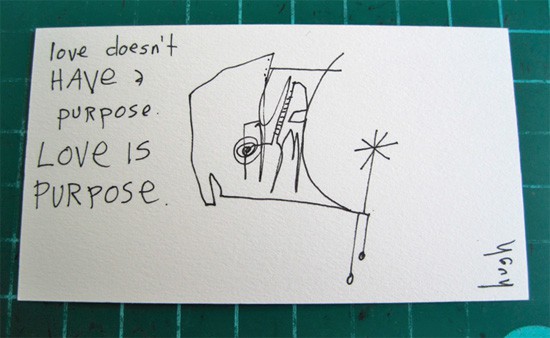 love doesn't
HAVE a
purpose.
LOVE IS
PURPOSE.
hugh